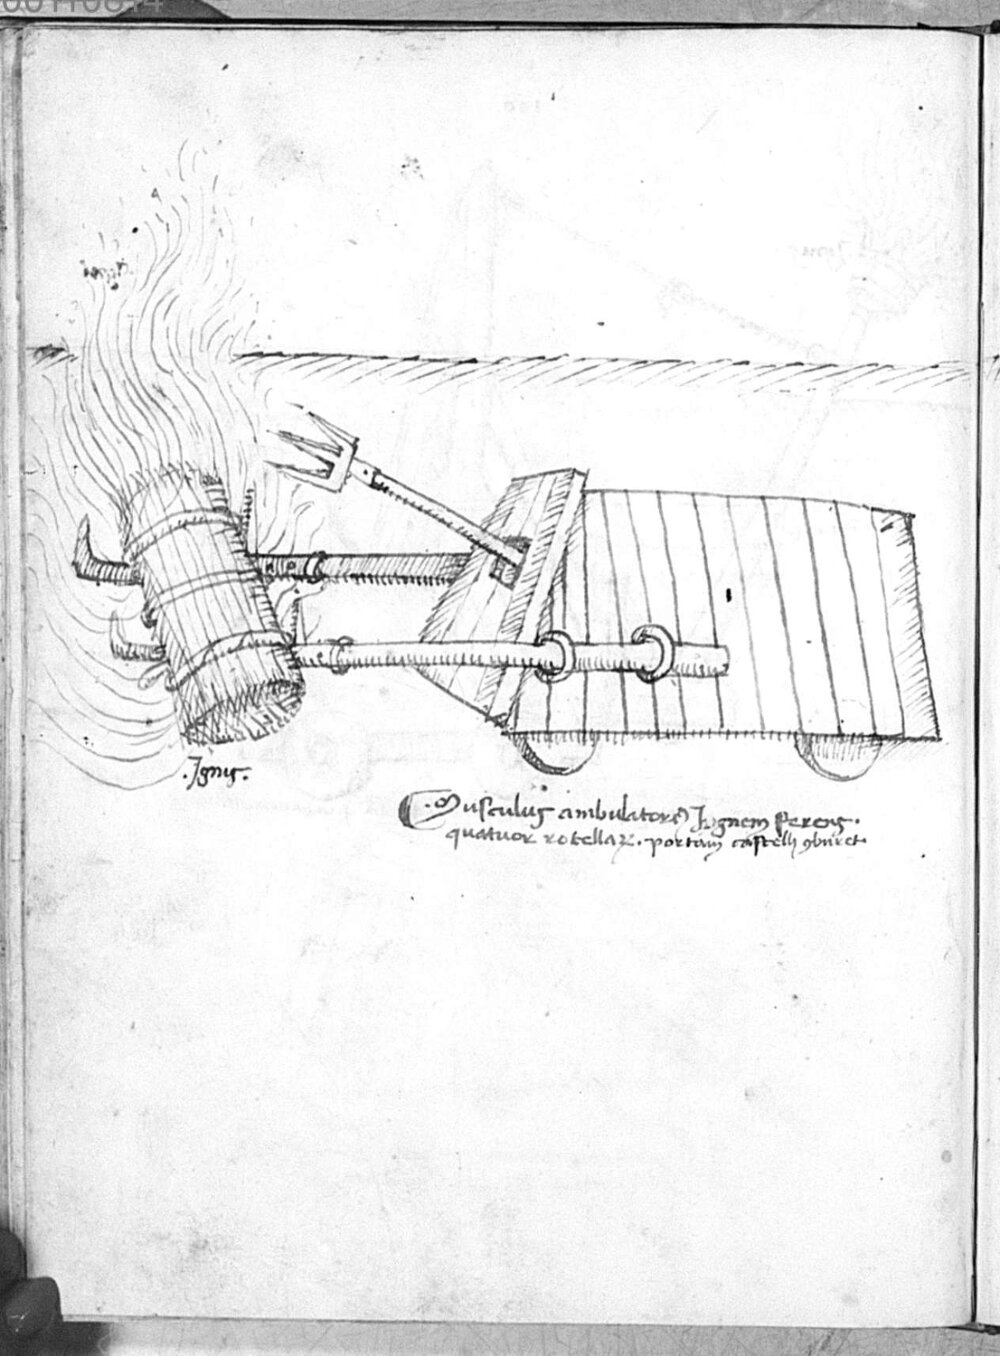 .Ignis.
Musculus ambulatorᝯ Ingnem ferens.
quatuor rotellaꝝ. portam castelli ꝯburet